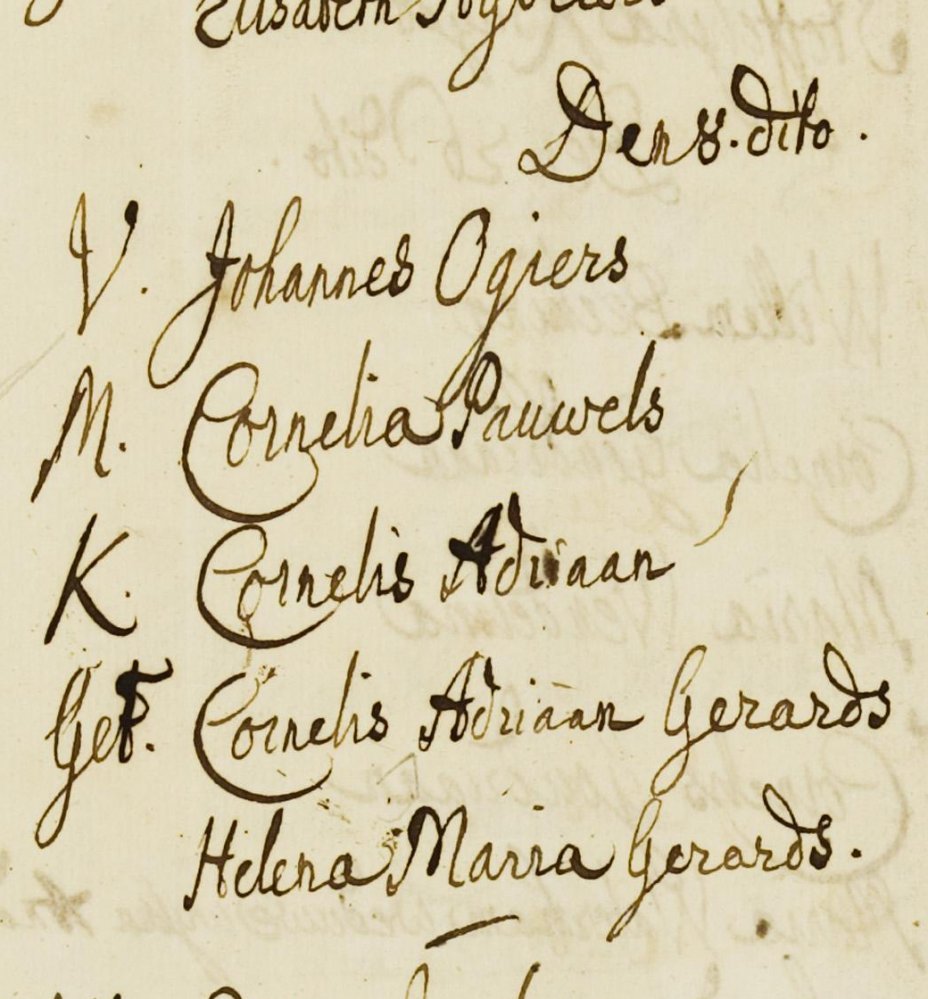 Elisabeth
Den 8. dito.
V. Johannes Ogiers
M. Cornelia Pauwels
K. Cornelis Adriaan
Get. Cornelis Adriaan Gerards
Helena Maria Gerards.